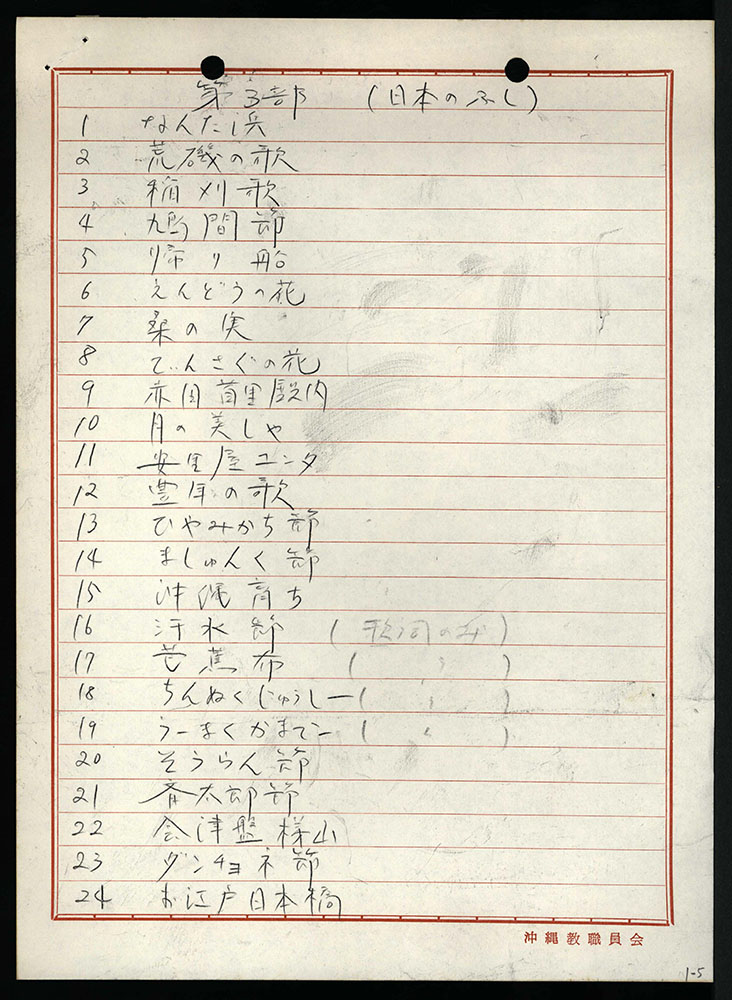 第3部 (日本のふし)
1 なんた浜
2 荒磯の歌
3 稲刈歌
4 鳩間節
5 帰り船
6 えんどうの花
7 桑の実
8 てぃんさぐの花
9 赤田首里殿内
10 月の美しゃ
11 安里屋ユンタ
12 豊年の歌
13 ひやみかち節
14 ましゅんく節
15 沖縄育ち
16 汗水節 (歌詞のみ)
17 芭蕉布 ( 〃 )
18 ちんぬくじゅうしー( 〃 )
19 うーまくかまてー ( 〃 )
20 そうらん節
21 斉太郎節
22 会津盤梯山
23 ダンチョネ節
24 お江戸日本橋
沖縄教職員会
1-5